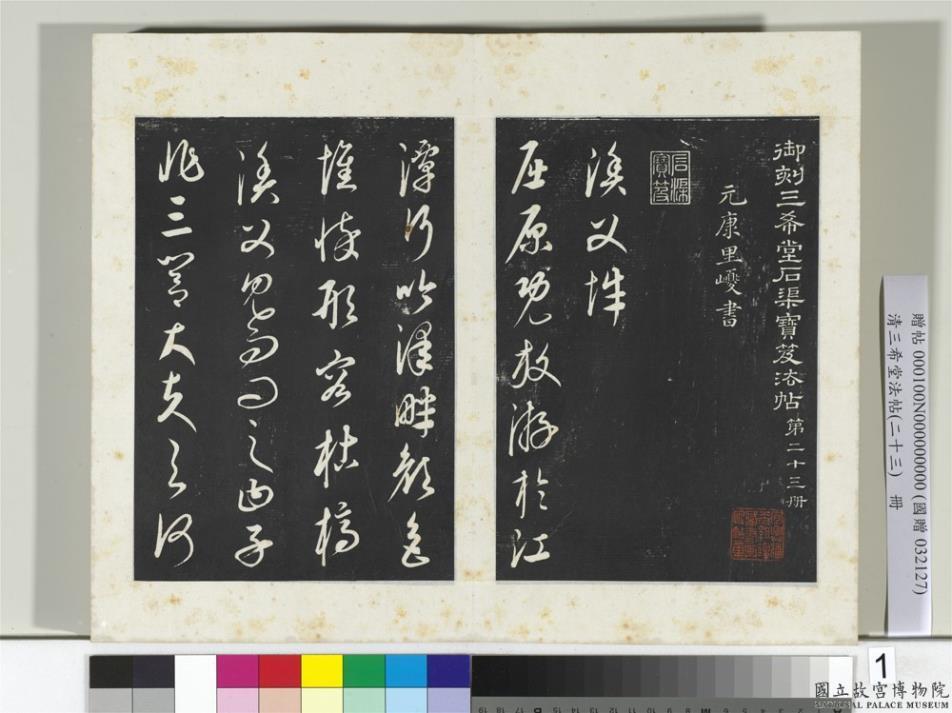 御刻三希堂石渠寶笈法帖第二十三冊
元康里巎書
石渠寶笈
漁父
屈原既放游於江
潭行吟澤畔顏色
憔悴形容枯槁
漁父見而問之曰子
非三閭大夫與何
贈帖 000100N000000000 (國贈 032127)
清三希堂法帖(二十三) 冊
1
國立故宮博物院
NATIONAL PALACE MUSEUM